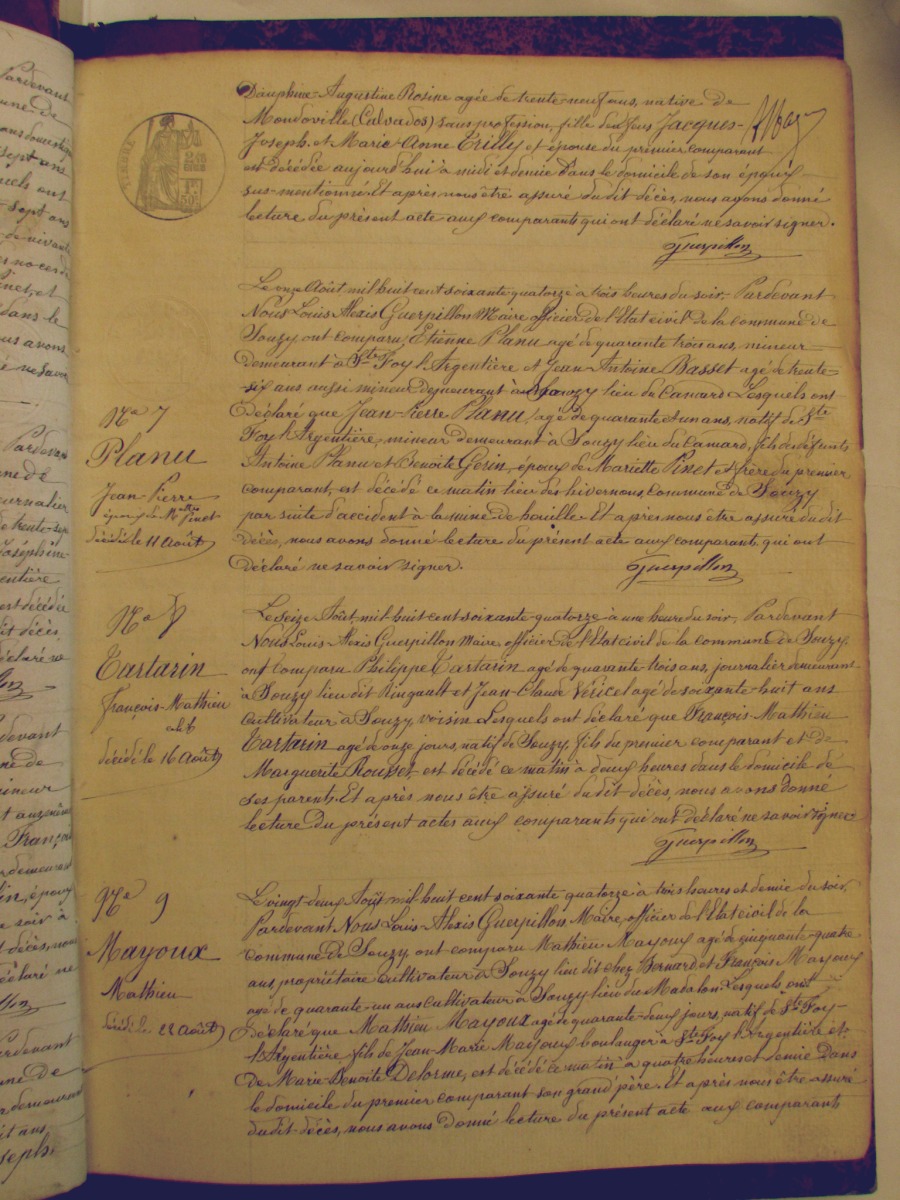 TIMBRE
Dauphine-Augustine Rosine agée de trente-neuf ans, native de
Mondoville (Calvados) sans profession, fille de feus Jacques-
Joseph et Marie-Anne Trilly et épouse du premier comparant
est décédée aujourd'hui à midi et demie dans le domicile de son époux
sus-mentionné. Et après nous être assuré du dit décès, nous avons donné
lecture du présent acte aux comparants qui ont déclaré ne savoir signer.
Guerpillon
Le onze Août mil huit cent soixante quatorze à trois heures du soir, Pardevant
Nous Louis-Alexis Guerpillon Maire officier de l'Etat civil de la commune de
Souzy ont comparu, Etienne Planu agé de quarante trois ans, mineur
demeurant à Ste Foy l'Argentière et Jean-Antoine Basset agé de trente-
six ans aussi mineur demeurant à Souzy lieu du Camard Lesquels ont
Déclaré que Jean-Pierre Planu, agé de quarante et un ans, natif de Ste
Foy l'Argentière, mineur demeurant à Souzy lieu du Camard, fils de défunts
Antoine Planu et Benoite Gorin, époux de Mariette Pinet et frère du premier
comparant, est décédé ce matin lieu des hivernous, commune de Souzy
par suite d'accident à la mine de houille. Et après nous être assuré du dit
décès, nous avons donné lecture du présent acte aux comparants qui ont
déclaré ne savoir signer.
Guerpillon
No 7
Planu
Jean-Pierre
époux de Mtte Pinet
décédé le 11 août
Le seize Août mil huit cent soixante quatorze à une heure du soir, Pardevant
Nous Louis-Alexis Guerpillon Maire, officier de l'Etat civil de la commune de Souzy,
ont comparu Philippe Tartarin agé de quarante-trois ans, journalier demeurant
à Souzy lieu dit Ringault et Jean-Claude Véricel agé de soixante-huit ans
cultivateur à Souzy voisin Lesquels ont déclaré que François-Mathieu
Tartarin agé de onze jours, natif de Souzy, fils du premier comparant et de
Marguerite Rousset est décédé ce matin à deux heures dans le domicile de
ses parents. Et après nous être assuré du dit décès, nous avons donné
lecture du présent actes aux comparants qui ont déclaré ne savoir signer
Guerpillon
No 8
Tartarin
François-Mathieu
décédé le 16 août
Le vingt-deux Août mil huit cent soixante quatorze à trois heures et demie du soir,
Pardevant Nous Louis-Alexis Guerpillon Maire, officier de l'Etat civil de la
commune de Souzy ont comparu Mathieu Mayoux agé de cinquante-quatre
ans, propriétaire cultivateur à Souzy lieu dit chez Bernard et François Mayoux
agé de quarante-un ans cultivateur à Souzy lieu du Madalon Lesquels ont
déclaré que Mathieu Mayoux agé de quarante-deux jours, natif de Ste Foy-
l'Argentière fils de Jean-Marie Mayoux boulanger à Ste Foy l'Argentière et
de Marie-Benoite Delorme, est décédé ce matin à quatre heures et demie dans
le domicile du premier comparant son grand père. Et après nous être assuré
du dit décès, nous avons donné lecture du présent acte aux comparants
No 9
Mayoux
Mathieu
décédé le 22 août